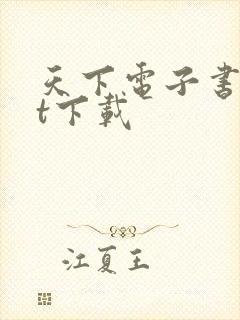 天下电子書
t下載
江夏王